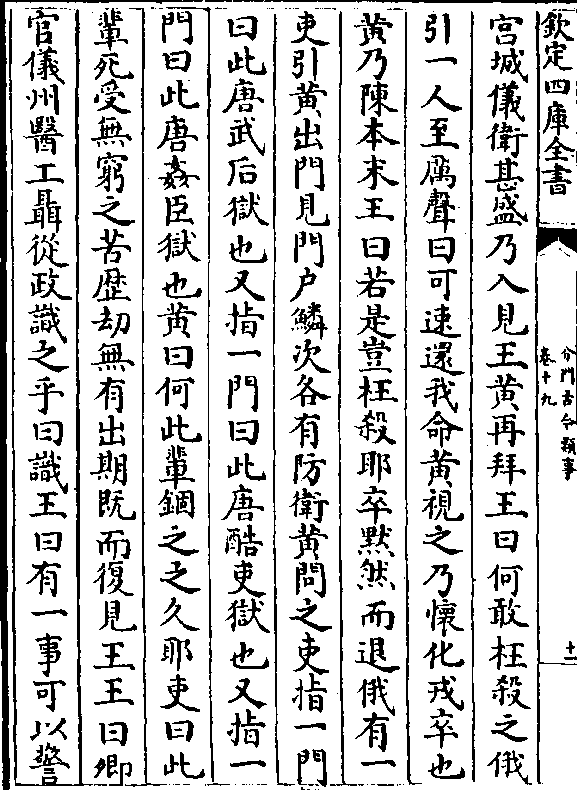 欽定四庫全書
分門古今類事
卷十九
十一
宫城儀衛甚盛乃入見王黄再拜王曰何敢枉殺之俄
引一人至厲聲曰可速還我命黄視之乃懷化戎卒也
黄乃陳本末王曰若是豈枉殺耶卒黙然而退俄有一
吏引黄出門見門户鱗次各有防衛黄問之吏指一門
曰此唐武后獄也又指一門曰此唐酷吏獄也又指一
門曰此唐姦臣獄也黄曰何此輩錮之之久耶吏曰此
輩死受無窮之苦歴劫無有出期既而復見王王曰卿
官儀州醫工聶從政識之乎曰識王曰有一事可以警